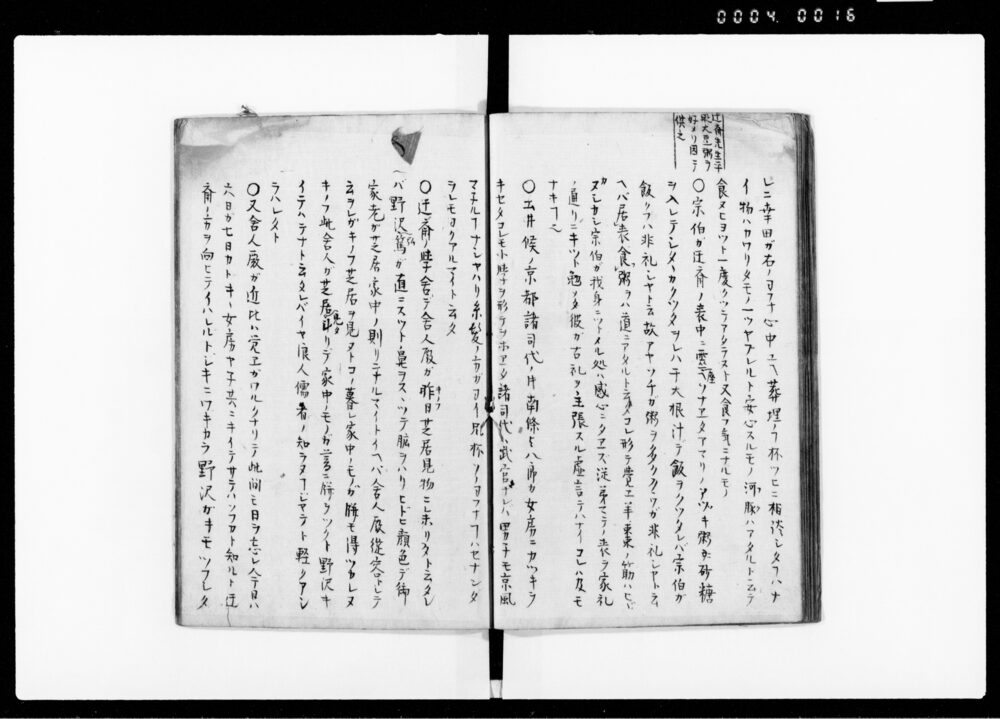 0004.0016
迂斎先生平
生大豆粥ヲ
好メリ因テ
供之
レニ幸田ガ右ノヨフナ心中ユヘ葬埋ノフ杯ツヒニ相談シタフハナ
イ物ハカワリタモノ一ツヤブレルト安心スルモノ河豚ハアタルト云テ
食ヌヒヨツト一度クツテアタラスト又食フ気ニナルモノ
〇宗伯ガ迂斎ノ喪中ニ霊座ヘソナヱタアマリノアヅキ粥ガ砂糖
ヲ入レテシンタヽカクツタヲレハ干大根汁デ飯ヲクツタレバ宗伯ガ
飯クフハ非礼シヤト云故アヤソチガ粥ヲ多クククツガ非礼シヤト云
ヘバ居喪食粥ヲハ道ニアタルト云タコレ形テ覚ユ羊棗ノ筋ハヒド
ヌシカシ宗伯ガ我身ニツトメル処ハ感心ニタヱズ従弟マテノ喪ヲ家礼
ノ通リニキツト勉ソタ彼ガ古礼ヲ主張スル虚言テハナイコレハ及モ
ナキフ也
〇土井候ノ京都諸司代ノ片南條与八郎カ女房ニカツキヲ
キセタコレモ小勝手ヲ形テヲホヱタ諸司代ハ武官ナレバ男子モ京風
マテルフナシシヤハリ糸鬢ノ方ガヨイ凩杯ソノヨフナフハセナンダ
ヲレモヨクアルマイト云タ
〇迂斎ノ学舎デ舎人殿ガ昨日芝居見物ニ末リタト云タレ
バ野沢篤ガ直ニスツト鼻ヲスヽツテ脇ヲハリヒドヒ顔色デ御
家老ガ芝居家中ノ則リニナルマイトイヘバ舎人殿従容トシテ
云ヲレガキノフ芝居ヲ見タトコノ暮シ家中ノモノガ餅モ得ツカレヌ
キノフ此舎人ガ芝居見タリデ家中ノモノガ言ニ餅ヲツクト野沢キ
イテハテナト云タレバイヤ浪人儒者ノ知ラヌフシヤテト軽クアシ
ラハレタト
〇又舎人殿ガ近比ハ覚ヱガワルクナリテ此間モ日ヲ忘レ今日ハ
六日カ七日カトキヽ女房ヤ子共ニキイテサテハソフカト知ルト迂
斎ノ方ヲ向ヒテイハレルトジキニワキカラ野沢ガキモツブレタ